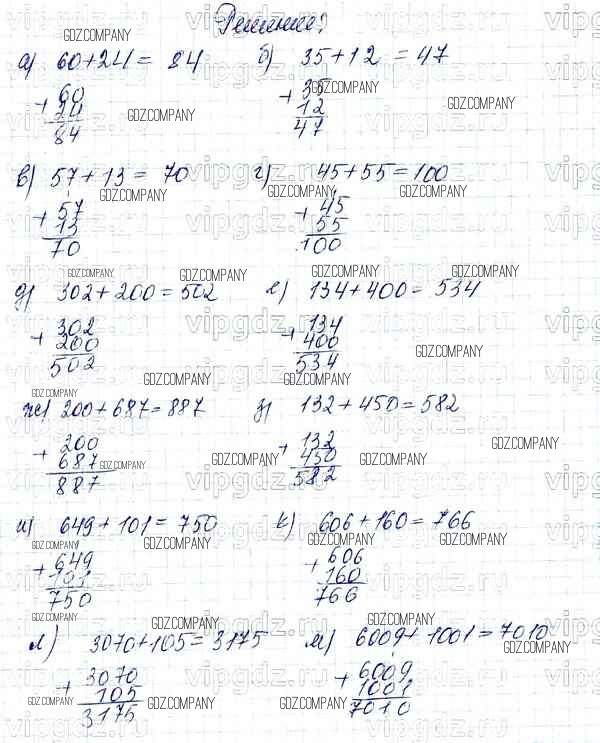 Решение:
а) 60+24= 84 б) 35+12 = 47
+ 60 + 35
24 12
84 47
в) 57+13= 70 г) 45+55=100
+ 57 + 45
13 55
70 100
д) 302+200=502 е) 134+400= 534
+ 302 + 134
200 400
502 534
ж) 200+687=887 з) 132+450=582
+ 200 + 132
687 450
887 582
и) 649+101=750 к) 606+160=766
+ 649 + 606
101 160
750 766
л) 3070+105=3175 м) 6009+1001=7010
+ 3070 + 6009
105 1001
3175 7010
GDZ.COMPANY
vipgdz.ru